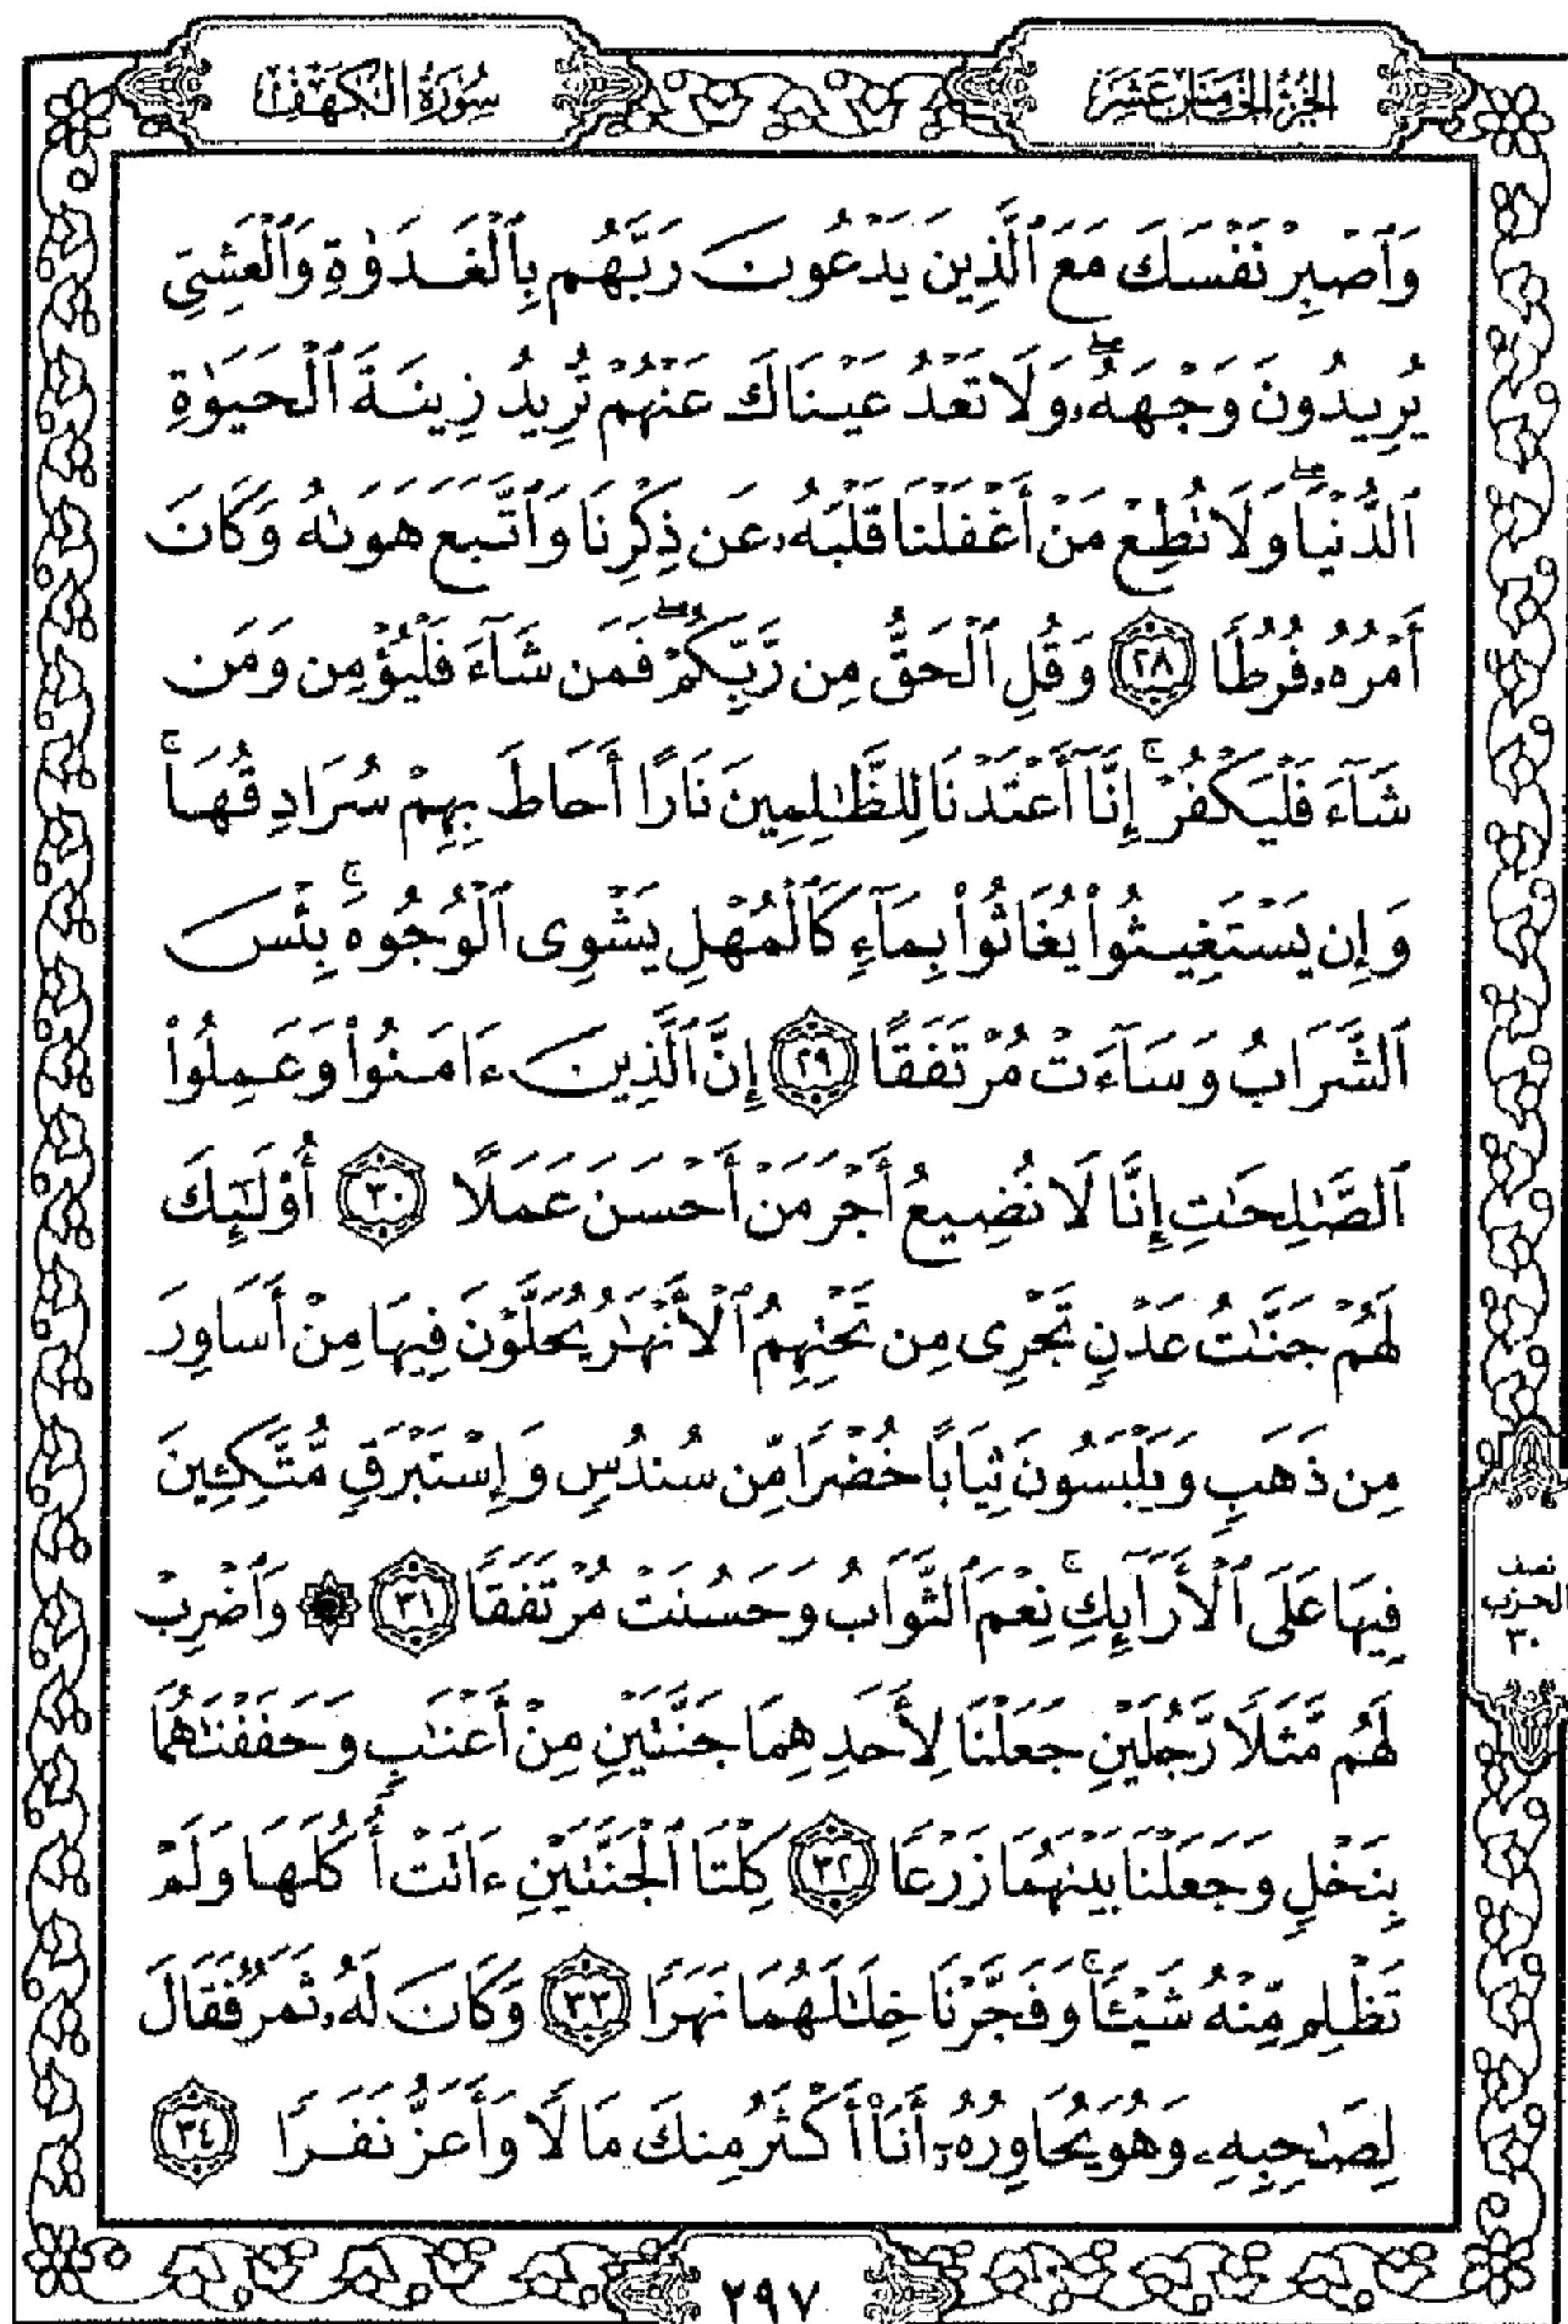 الجزء الخامس عشر
سورة الكهف
وَٱصْبِرْ نَفْسَكَ مَعَ ٱلَّذِينَ يَدْعُونَ رَبَّهُم بِٱلْغَدَوٰةِ وَٱلْعَشِىِّ
يُرِيدُونَ وَجْهَهُۥۖ وَلَا تَعْدُ عَيْنَاكَ عَنْهُمْ تُرِيدُ زِينَةَ ٱلْحَيَوٰةِ
ٱلدُّنْيَاۖ وَلَا تُطِعْ مَنْ أَغْفَلْنَا قَلْبَهُۥ عَن ذِكْرِنَا وَٱتَّبَعَ هَوَىٰهُ وَكَانَ
أَمْرُهُۥ فُرُطًا ٢٨ وَقُلِ ٱلْحَقُّ مِن رَّبِّكُمْۖ فَمَن شَآءَ فَلْيُؤْمِن وَمَن
شَآءَ فَلْيَكْفُرْۚ إِنَّآ أَعْتَدْنَا لِلظَّـٰلِمِينَ نَارًا أَحَاطَ بِهِمْ سُرَادِقُهَاۚ
وَإِن يَسْتَغِيثُوا۟ يُغَاثُوا۟ بِمَآءٍ كَٱلْمُهْلِ يَشْوِى ٱلْوُجُوهَۚ بِئْسَ
ٱلشَّرَابُ وَسَآءَتْ مُرْتَفَقًا ٢٩ إِنَّ ٱلَّذِينَ ءَامَنُوا۟ وَعَمِلُوا۟
ٱلصَّـٰلِحَـٰتِ إِنَّا لَا نُضِيعُ أَجْرَ مَنْ أَحْسَنَ عَمَلًا ٣٠ أُو۟لَـٰٓئِكَ
لَهُمْ جَنَّـٰتُ عَدْنٍ تَجْرِى مِن تَحْتِهِمُ ٱلْأَنْهَـٰرُ يُحَلَّوْنَ فِيهَا مِنْ أَسَاوِرَ
مِن ذَهَبٍ وَيَلْبَسُونَ ثِيَابًا خُضْرًا مِّن سُندُسٍ وَإِسْتَبْرَقٍ مُّتَّكِـِٔينَ
فِيهَا عَلَى ٱلْأَرَآئِكِۚ نِعْمَ ٱلثَّوَابُ وَحَسُنَتْ مُرْتَفَقًا ٣١ ۞ وَٱضْرِبْ
نصف
الحزب
٣٠
لَهُم مَّثَلًا رَّجُلَيْنِ جَعَلْنَا لِأَحَدِهِمَا جَنَّتَيْنِ مِنْ أَعْنَـٰبٍ وَحَفَفْنَـٰهُمَا
بِنَخْلٍ وَجَعَلْنَا بَيْنَهُمَا زَرْعًا ٣٢ كِلْتَا ٱلْجَنَّتَيْنِ ءَاتَتْ أُكُلَهَا وَلَمْ
تَظْلِم مِّنْهُ شَيْـًٔاۚ وَفَجَّرْنَا خِلَـٰلَهُمَا نَهَرًا ٣٣ وَكَانَ لَهُۥ ثَمَرٌ فَقَالَ
لِصَـٰحِبِهِۦ وَهُوَ يُحَاوِرُهُۥٓ أَنَا۠ أَكْثَرُ مِنكَ مَالًا وَأَعَزُّ نَفَرًا ٣٤
٢٩٧